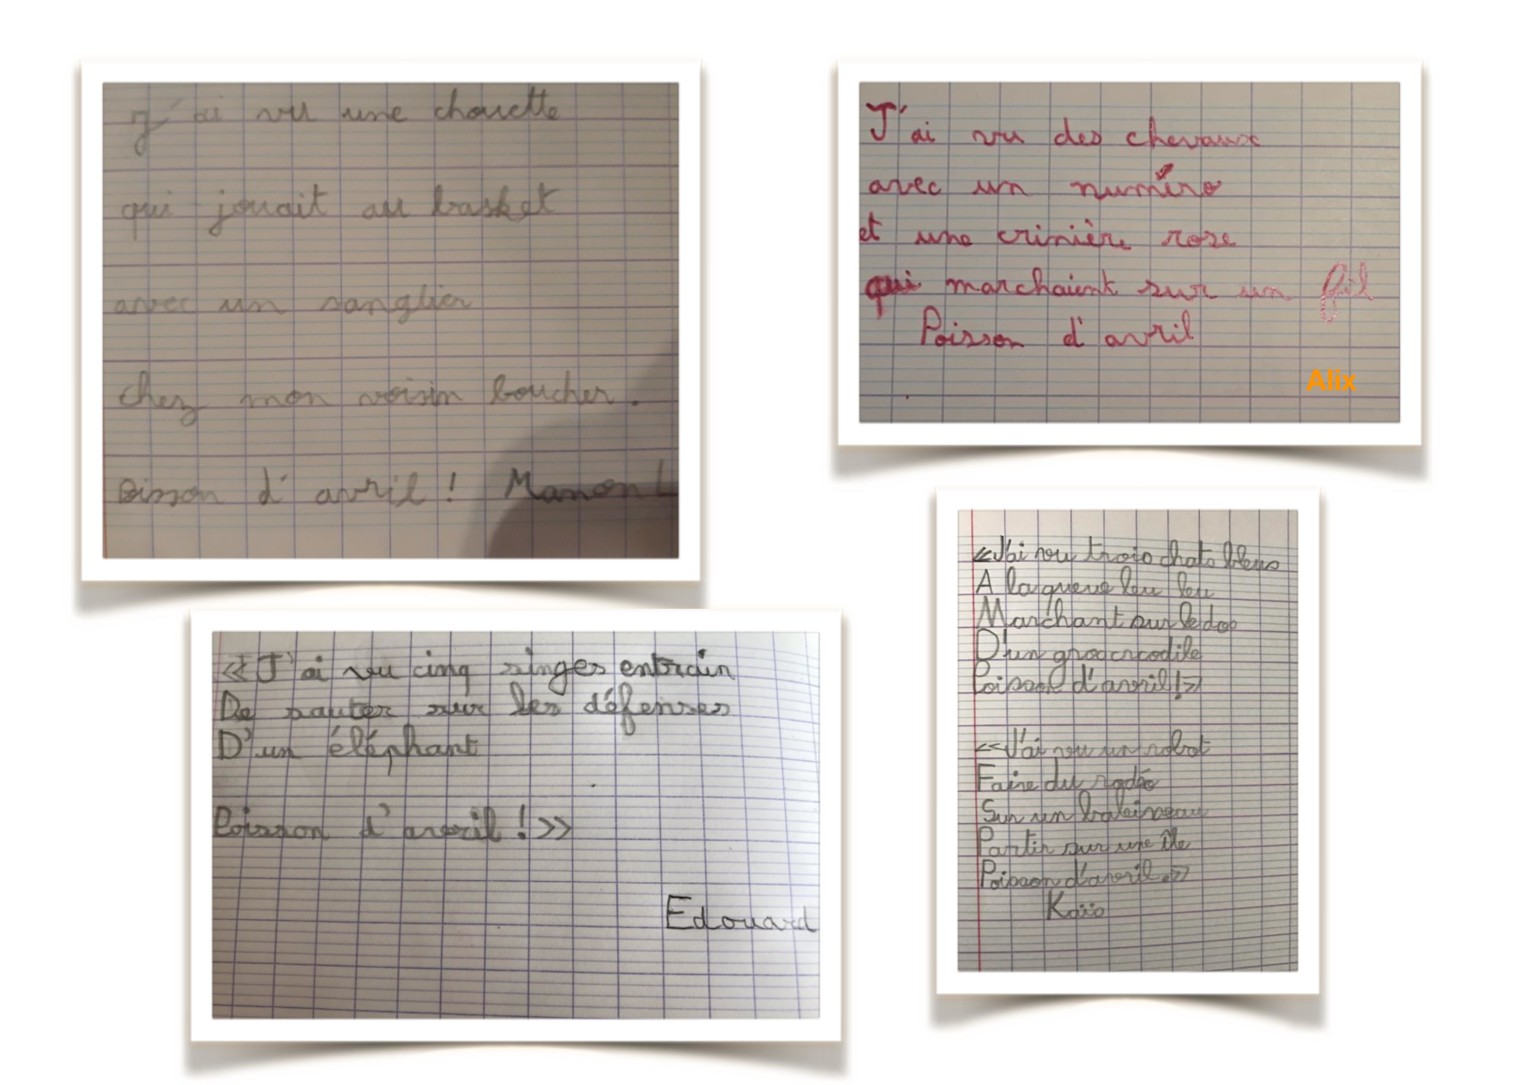 J'ai vu une chouette
qui jouait au basket
avec un sanglier
chez mon voisin boucher.
oisson d'avril ! Manon L
J'ai vu des chevaux
avec un numéro
et une crinière rose
qui marchaient sur un fil
Poisson d'avril
Alix
<<J'ai vu cinq singes entrain
De sauter sur les défenses
D'un éléphant
Poisson d'avril !>>
Edouard
<<J'ai vu trois chats bleus
A la queue leu leu
Marchant sur le dos
D'un gros crocodile
Poisson d'avril !>>
<<J'ai vu un robot
Faire du rodéo
Sur un baleineau
Partir sur une île
Poisson d'avril.>>